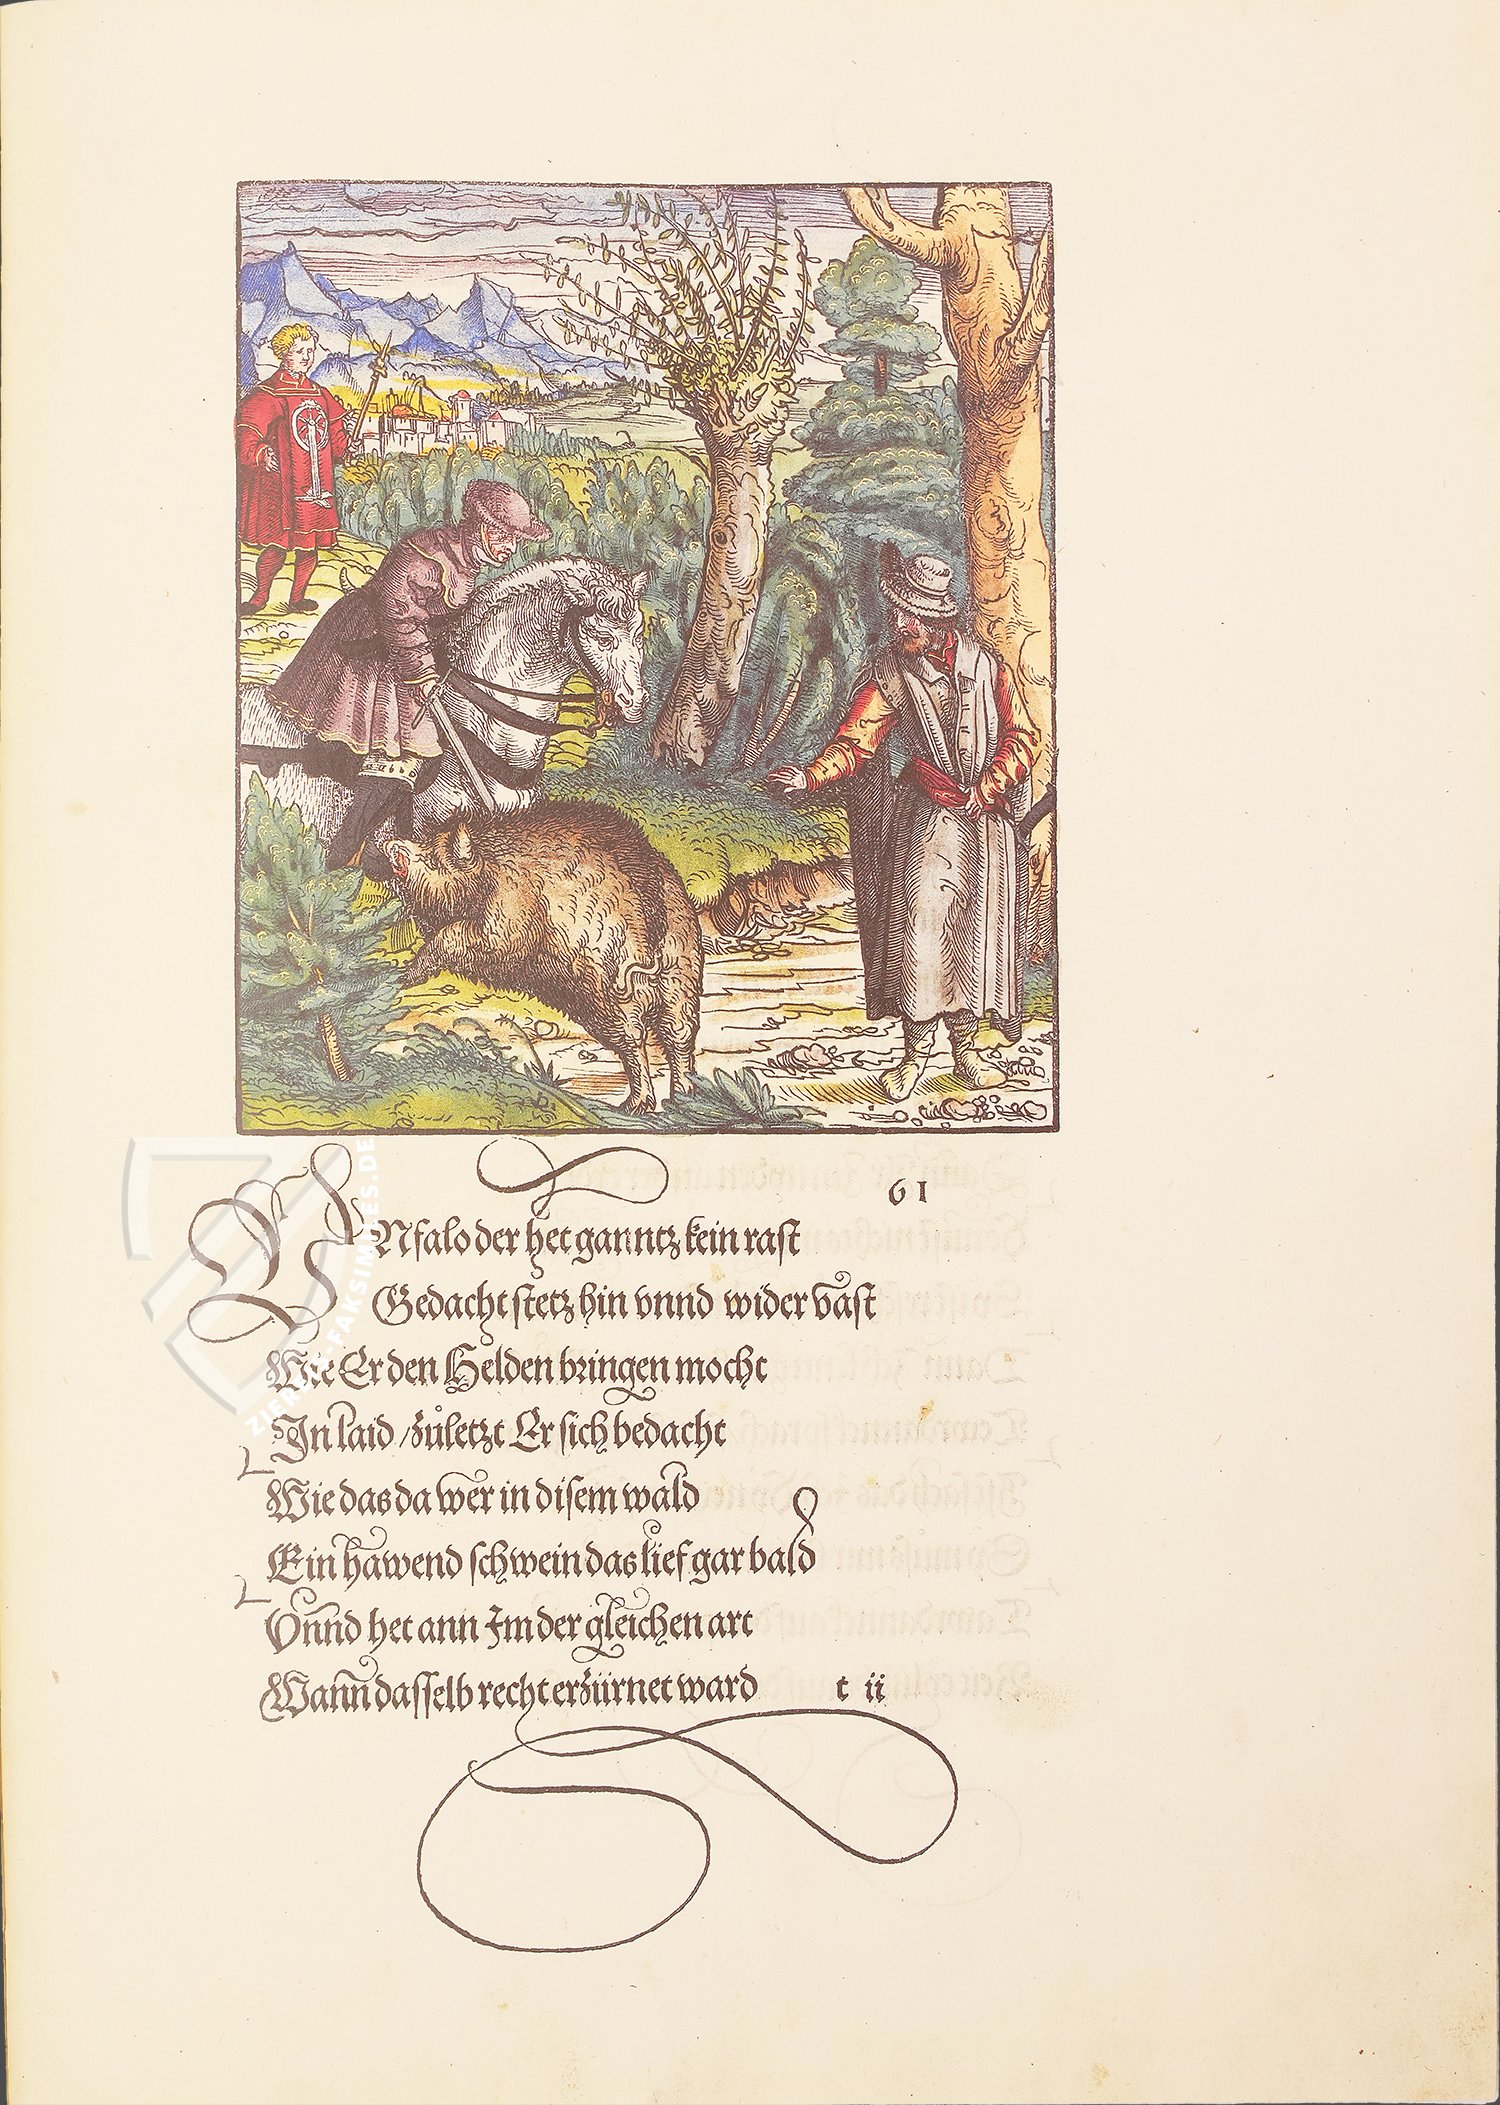 61
VNfalo der het ganntz kein rast
Gedacht stetz hin vnnd wider vast
Wie Er den Helden bringen mocht
In laid / zůletzt Er sich bedacht
Wie das da wer in disem wald
Ein hawend schwein das lief gar bald
Vnnd het ann Im der gleichen art
Wann dasselb recht erzürnet ward t ii
ZIEREIS-FAKSIMILES.DE